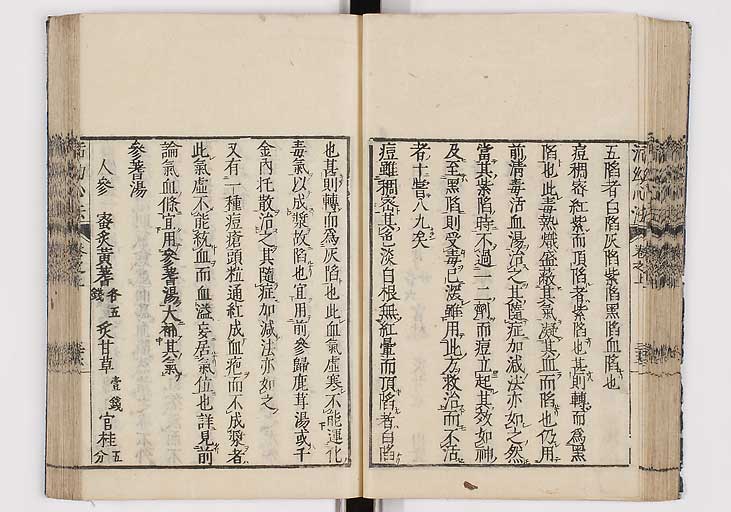 五陷者白陷灰陷紫陷黑陷血陷也
痘稠密紅紫而頂陷者紫陷也甚則轉而爲黑
陷也此毒熱熾盛蔽其氣凝其血而陷也仍用
前清毒活血湯治之其隨症加減法亦如之然
當其紫陷時不過一二劑而痘立起其效如神
及至黑陷則受毒已深雖用此方救治而不活
者十嘗八九矣
痘雖稠密其色淡白根無紅暈而頂陷者白陷
也甚則轉而爲灰陷也此血氣虛寒不能運化
毒氣以成漿故陷也宜用前參歸鹿茸湯或千
金內托散治之其隨症加減法亦如之
又有一種痘瘡頭粒通紅成血疱而不成漿者
此氣虛不能統血而血溢妄居氣位也詳見前
論氣血條宜用參蓍湯大補其氣
參蓍湯
人參 蜜炙黃蓍各五錢 炙甘草壹錢 官桂五分
活幼心法 卷之上